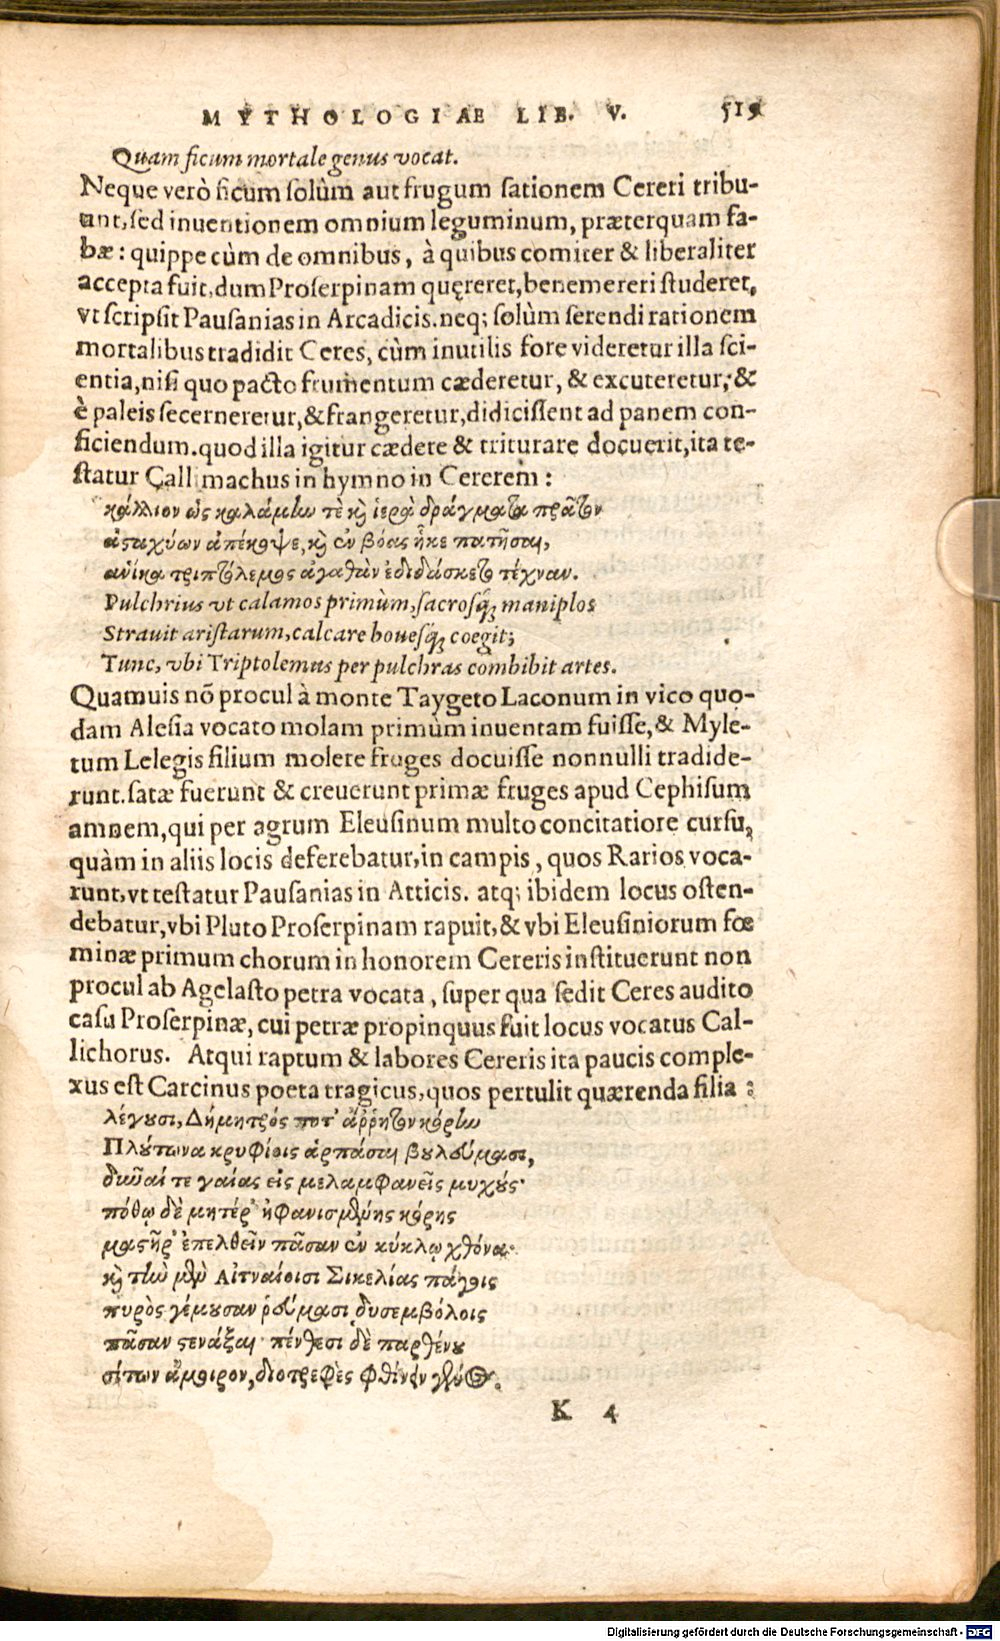 MYTHOLOGIAE LIB. V. 519
Quam ficum mortale genus vocat.
Neque verò ficum solùm aut frugum sationem Cereri tribu-
unt, sed inuentionem omnium leguminum, præterquam fa-
bæ: quippe cùm de omnibus, à quibus comiter & liberaliter
accepta fuit, dum Proserpinam quęreret, benemereri studeret,
vt scripsit Pausanias in Arcadicis. neq; solùm serendi rationem
mortalibus tradidit Ceres, cùm inutilis fore videretur illa sci-
entia, nisi quo pacto frumentum cæderetur, & excuteretur, &
è paleis secerneretur, & frangeretur, didicissent ad panem con-
ficiendum. quod illa igitur cædere & triturare docuerit, ita te-
statur Callimachus in hymno in Cererem:
κάλλιον ὡς καλάμlω τὲ κὶ ἱερὰ δράγματα πρᾶτον
ἀσαχύων ἀπέκοψε, κὶ ἐν βόας ἧκε πατῆσαι,
ἁνίκα τριπτόλεμος ἀγαθὰν ἐδιδάσκετο τέχναν.
Pulchrius vt calamos primùm, sacrosq; maniplos
Strauit aristarum, calcare bouesq; coegit;
Tunc, vbi Triptolemus per pulchras combibit artes.
Quamuis nō procul à monte Taygeto Laconum in vico quo-
dam Alesia vocato molam primùm inuentam fuisse, & Myle-
tum Lelegis filium molere fruges docuisse nonnulli tradide-
runt. satæ fuerunt & creuerunt primæ fruges apud Cephisum
amnem, qui per agrum Eleusinum multo concitatiore cursu,
quàm in aliis locis deferebatur, in campis, quos Rarios voca-
runt, vt testatur Pausanias in Atticis. atq; ibidem locus osten-
debatur, vbi Pluto Proserpinam rapuit, & vbi Eleusiniorum fœ
minæ primum chorum in honorem Cereris instituerunt non
procul ab Agelasto petra vocata, super qua sedit Ceres audito
casu Proserpinæ, cui petræ propinquus fuit locus vocatus Cal-
lichorus. Atqui raptum & labores Cereris ita paucis comple-
xus est Carcinus poeta tragicus, quos pertulit quærenda filia:
λέγουσι, Δήμητρός ποτ' ἄῤῥητον κόρην
Πλούτωνα κρυφίοις ἁρπάσαι βουλεύμασι,
δῦναί τε γαίας εἰς μελαμφανεῖς μυχούς·
πόθῳ δὲ μητέρ' ἠφανισμένης κόρης
μαστῆρ' ἐπελθεῖν πᾶσαν ἐν κύκλῳ χθόνα·
κὶ τὴν μὲν Αἰτναίοισι Σικελίας πάγοις
πυρὸς γέμουσαν ῥεύμασι δυσεμβόλοις
πᾶσαν στενάξαι· πένθεσι δὲ παρθένου
σίτων ἄμοιρον, διοτρεφὲς φθίνειν γένος.
K 4
Digitalisierung gefördert durch die Deutsche Forschungsgemeinschaft - DFG